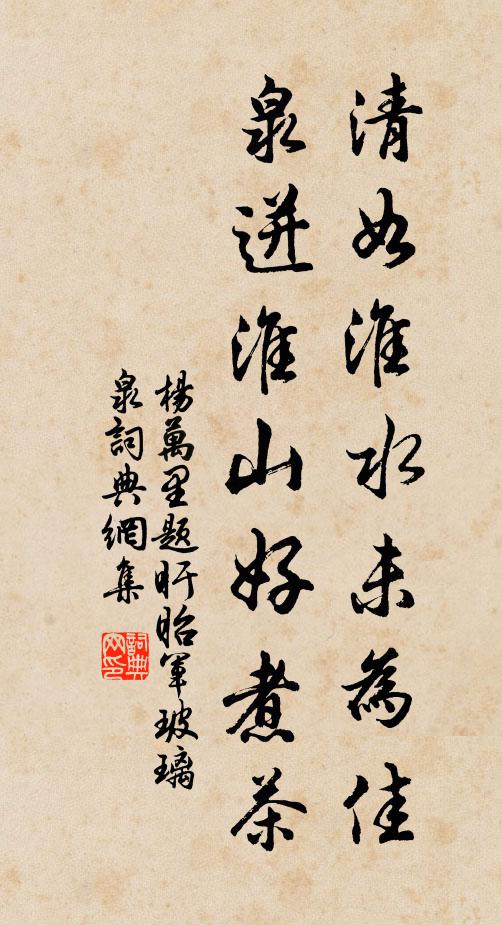 清如淮水未為佳
泉迸淮山好煮茶
楊萬里題盱眙軍玻璃
泉詞典網集
詞典网印